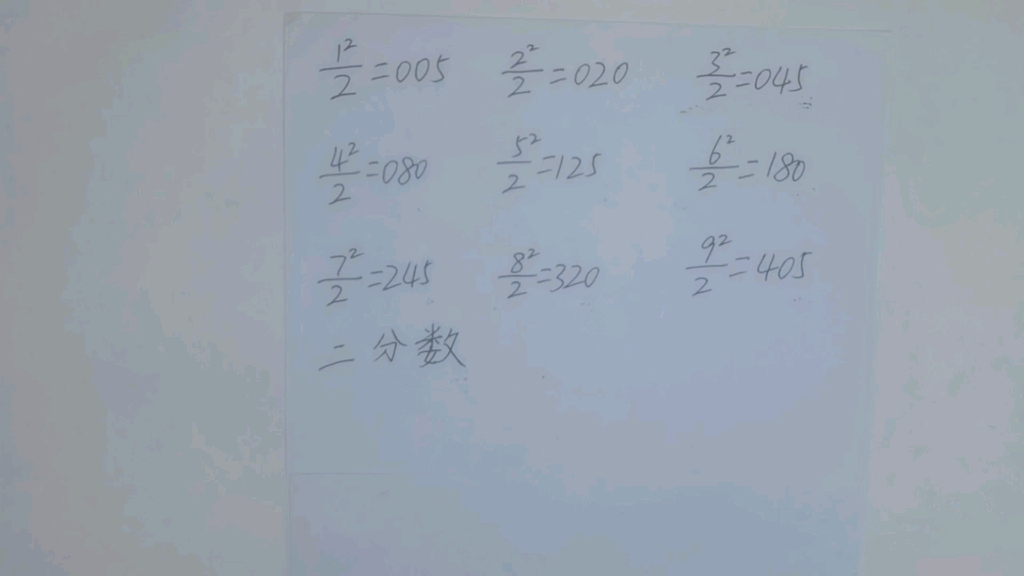 1²/2=005 2²/2=020 3²/2=045
4²/2=080 5²/2=125 6²/2=180
7²/2=245 8²/2=320 9²/2=405
二分数